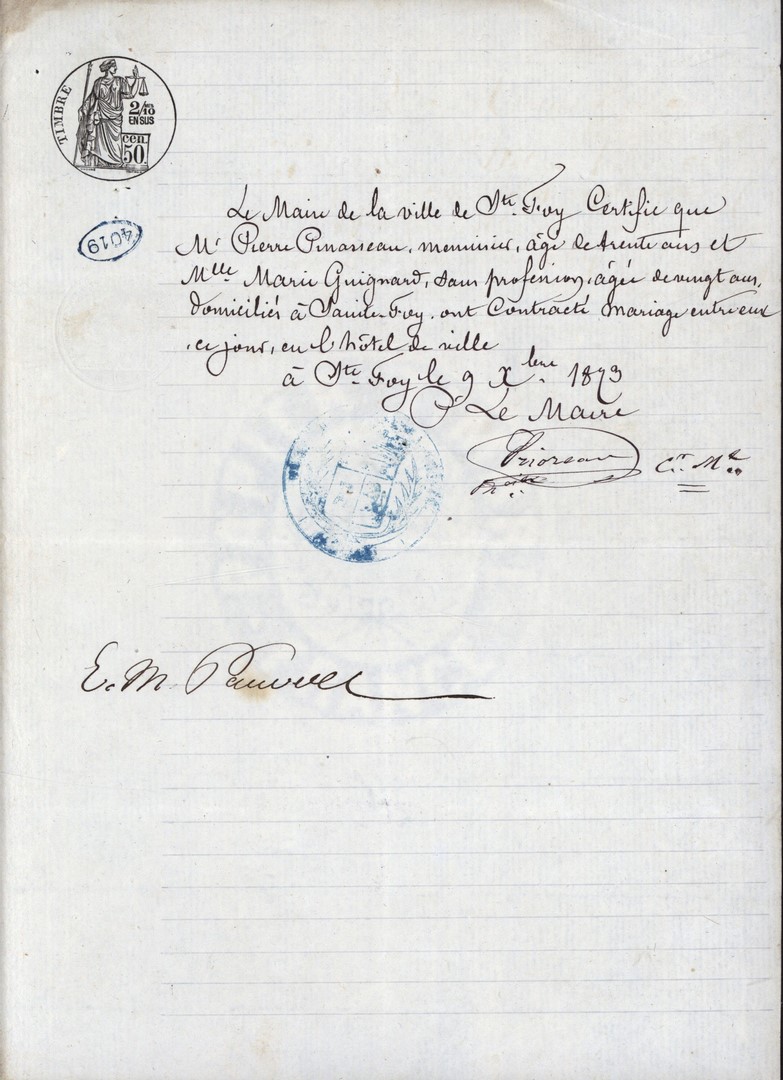 TIMBRE
2/10 EN SUS
CEN. 50.
4019
Le Maire de la ville de Ste. Foy Certifie que
Mr Pierre Pinasseau, menuisier, âgé de trente ans et
Mlle Marie Guignard, sans profession, âgée de vingt ans,
domiciliés à Sainte-Foy, ont Contracté mariage entre eux
ce jour, en l'hôtel de ville
à Ste. Foy le 9 Xbre 1873
Pr Le Maire
Cr. Ml.
E. M.